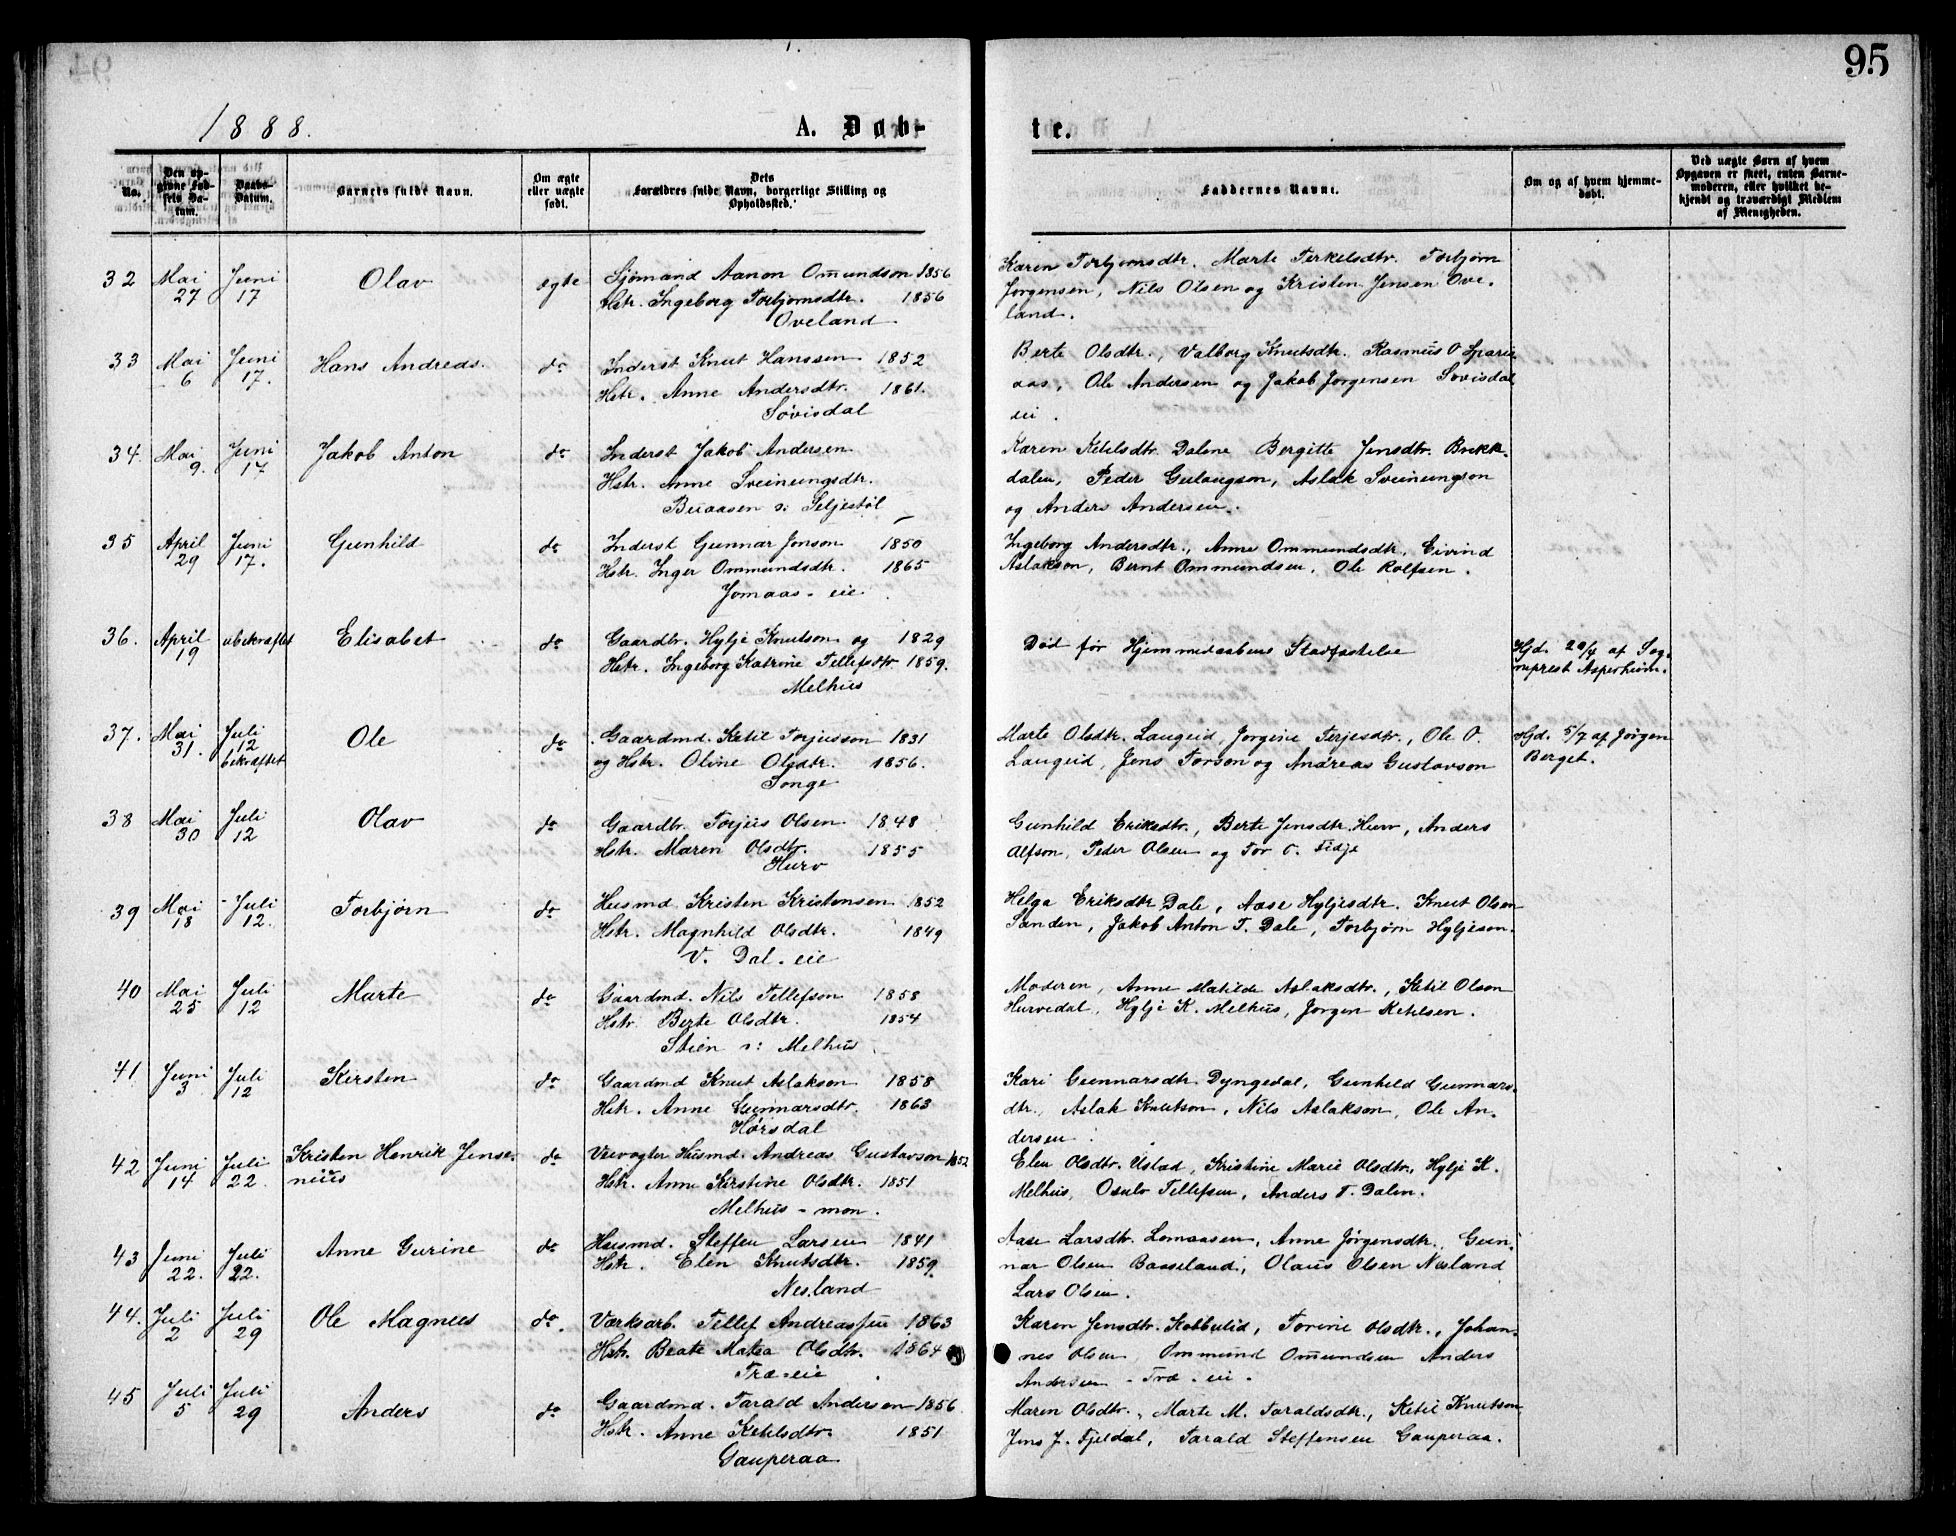 95
1888.
A. Døb-
te.
No.
Den op-
givne Fød-
sels Da-
tum.
Daabs-
Datum.
Barnets fulde Navn.
Om ægte
eller uægte
født.
Dets
Forældres fulde Navn, borgerlige Stilling og
Opholdssted.
Faddernes Navne.
Om og af hvem hjemme-
døbt.
Ved uægte Børn af hvem
Opgaven er skeet, enten Barne-
moderen, eller hvilket be-
kjendt og troværdigt Medlem
af Menigheden.
32 Mai 27 Juni 17 Olav ægte
Sjømand Aanon Omundson 1856
Hstr. Ingeborg Torbjørnsdtr. 1856
Oveland
Karen Torbjørnsdtr. Marte Terkelsdtr. Torbjørn
Jørgensen, Nils Olsen og Kristen Jensen Ove-
land.
33 Mai 6 Juni 17. Hans Andreas. do
Inderst Knut Hanssen 1852
Hstr. Anne Andersdtr. 1861.
Søvisdal
Berte Olsdtr., Valborg Knutsdtr. Rasmus O
aas, Ole Andersen og Jakob Jørgensen Sovisdal
eii.
34. Mai 9. Juni 17 Jakob Anton do
Inderst Jakob Andersen
Hstr. Anne Sveinungsdtr.
Buaasen s: Seljestøl
Karen Ketelsdtr. Dalene Bergitte Jensdtr. Bukk-
dalen, Peder Gulaugson, Aslak Sveinungson
og Anders Andersen.
35 April 29 Juni 17. Gunhild do
Inderst Gunnar Jonson 1850
Hstr. Inger Ommundsdtr. 1865
Jomaas-eie
Ingeborg Andersdtr., Anne Ommundsdtr, Eivind
Aslakson, Bernt Ommundsen, Ole Rolfsen.
36. April 19 ubekræftet Elisabet do
Gaardbr. Hylje Knutson og 1829
Hstr. Ingeborg Katrine Tellefsdtr 1859.
Melhus
Død før Hjemmedaabens Stadfæstelse
Hjd. 20/4 af Sog-
neprest Asperheim.
37. Mai 31. Juli 12 bekræftet Ole do
Gaardmd. Ketil Torjusson 1831
og Hstr. Oline Olsdtr. 1856.
Songe
Marte Olsdtr. Laugeid, Jørgine Terjesdtr., Ole O.
Laugeid, Jens Torson og Andreas Gustavson
Hjd. 5/7 af Jørgen
Berget.
38 Mai 30 Juli 12 Olav do
Gaardbr. Torjus Olsen 1848
Hstr. Maren Olsdtr. 1855
Hurv
Gunhild Eriksdtr., Berte Jensdtr. Hurv, Anders
Alfson, Peder Olsen og Tor O. Tidje
39 Mai 18 Juli 12. Torbjørn do
Husmd. Kristen Kristensen 1852
Hstr. Magnhild Olsdtr. 1849
V. Dal-eie
Helga Eriksdtr Dale, Aase Hyljesdtr. Knut Olsen
Sanden, Jakob Anton T. Dale, Torbjørn Hyljeson.
40 Mai 25 Juli 12 Marte do
Gaardmd. Nils Tellefson 1858
Hstr Berte Olsdtr. 1854
Stien s: Melhus
Moderen, Anne Matilde Aslaksdtr., Ketil Olson
Hurvedal, Hylje K. Melhus, Jørgen Ketelsen.
41 Juni 3 Juli 12 Kirsten do
Gaardmd Knut Aslakson 1858
Hstr. Anne Gunnarsdtr. 1863
Hørsdal
Kari Gunnarsdtr. Dyngedal, Gunhild Gunnars-
dtr., Aslak Knutson, Nils Aslakson, Ole An-
dersen.
42 Juni 14 Juli 22 Kristen Henrik Jense- do
nius
Veivogter Husmd. Andreas Gustavson 1852
Hstr. Anne Kirstine Olsdtr. 1851
Melhus-mon.
Elen Olsdtr. Ustad, Kristine Marie Olsdtr., Hylje K.
Melhus, Osulv Tellefsen, Anders T. Dalen.
43 Juni 22. Juli 22. Anne Gurine do
Husmd. Steffen Larsen 1841
Hstr. Elen Knutsdtr. 1859.
Nesland
Aase Larsdtr. Lomaasen, Anne Jørgensdtr., Gun-
nar Olsen Baaseland, Olaus Olsen Nesland
Lars Olsen.
44. Juli 2 Juli 29 Ole Magnus do.
Værksarb. Tellef Andreassen 1863
Hstr. Beate Matea Olsdtr. 1864
Træ-eie
Karen Jensdtr. Kobbulid, Torine Olsdtr., Johan-
nes Olsen, Ommund Omundsen Anders
Andersen - Træ-eii.
45 Juli 5 Juli 29 Anders do
Gaardmd. Tarald Andersen 1856
Hstr. Anne Ketelsdtr. 1851
Gauperaa
Maren Olsdtr., Marte M. Taraldsdtr., Ketil Knutson,
Jens J. Fjeldal, Tarald Steffensen Gauperaa.